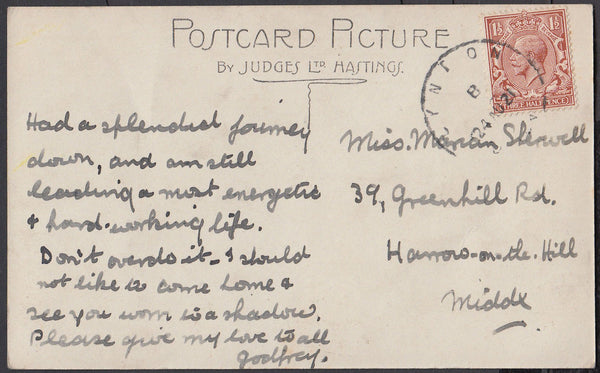 POSTCARD PICTURE
BY JUDGES LTD. HASTINGS.
1½ 1½
THREE HALFPENCE
YNTON
B
24
21
Had a splendid journey
down, and am still
leading a most energetic
& hard-working life.
Don't overdo it – I should
not like to come home &
see you worn to a shadow.
Please give my love to all
Godfrey.
Miss. Marian Sherwell
39, Greenhill Rd.
Harrow-on-the-Hill
Middx